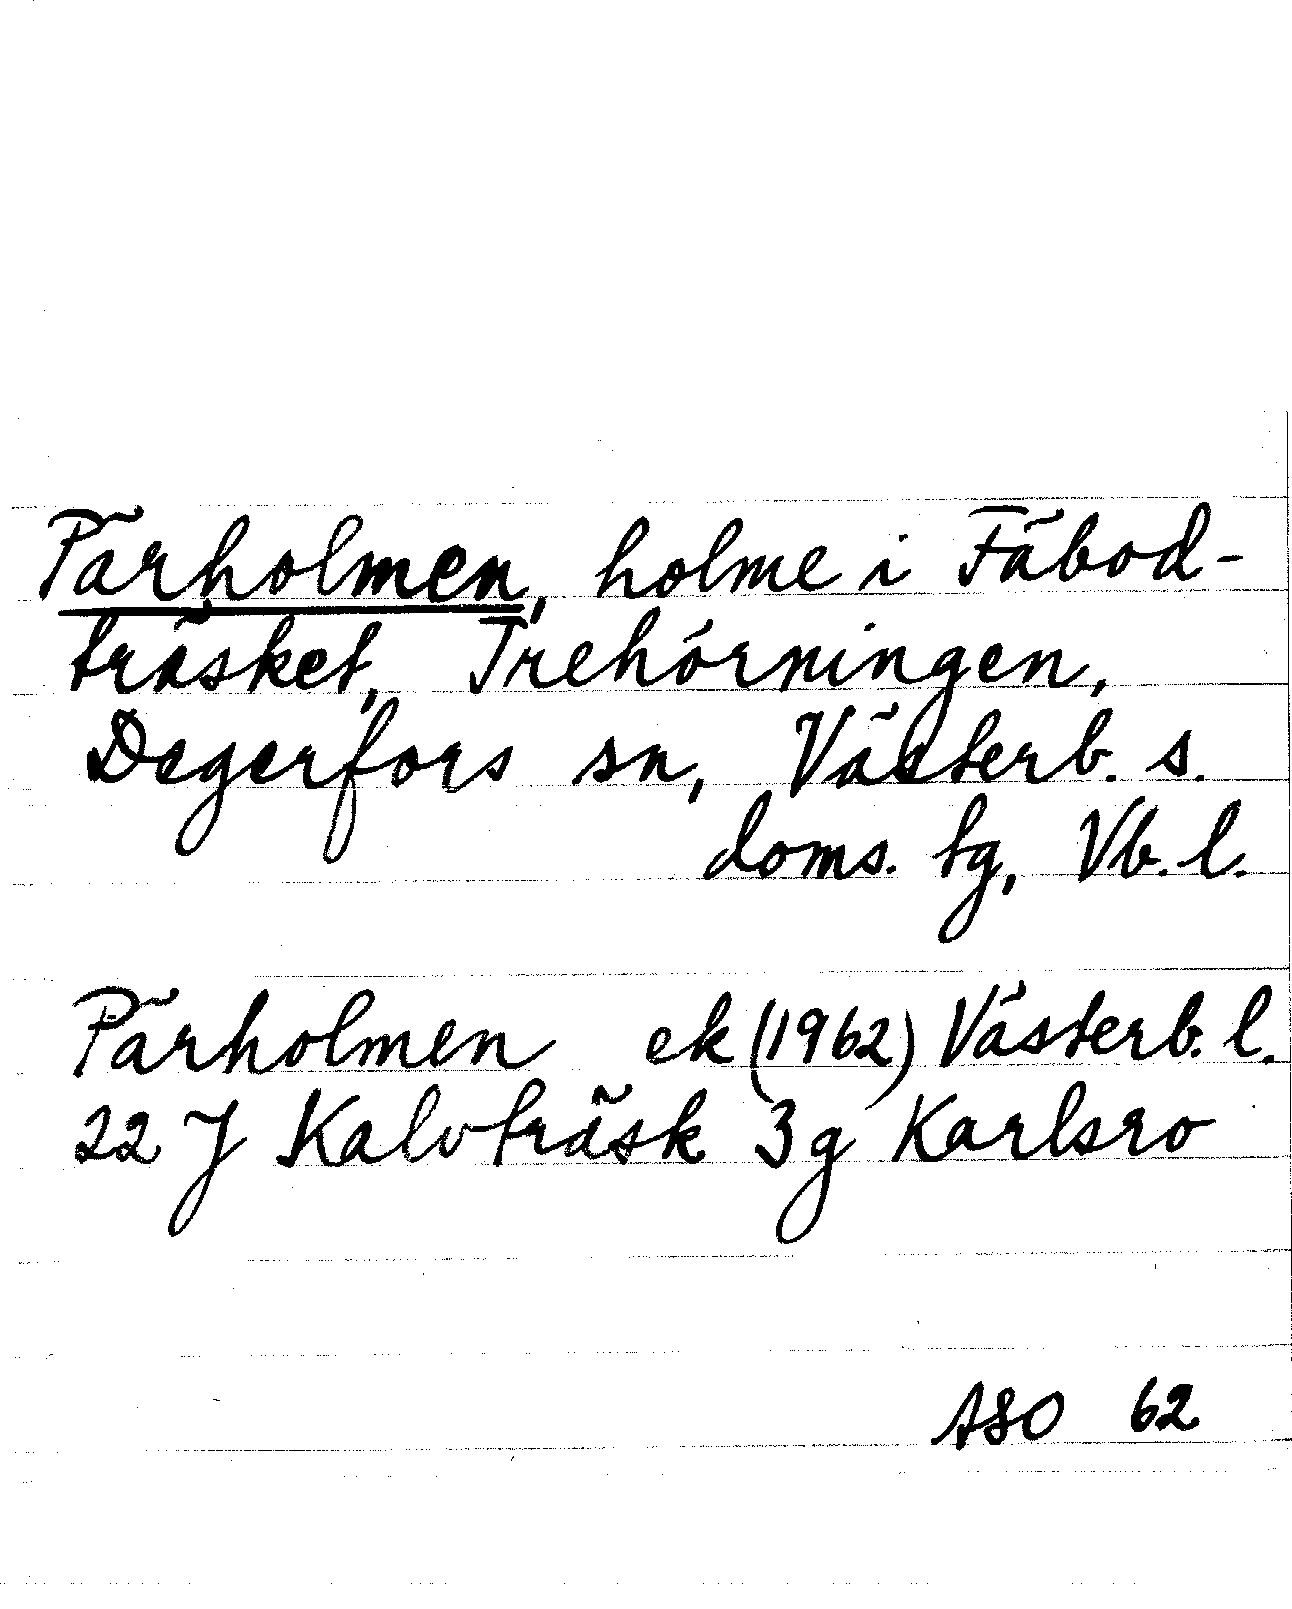 Pärholmen, holme i Fäbod-
träsket, Trehörningen,
Degerfors sn, Västerb. s.
doms. tg, Vb. l.
Pärholmen ek (1962) Västerb. l.
22 J Kalvträsk 3 g Karlsro
ASO 62